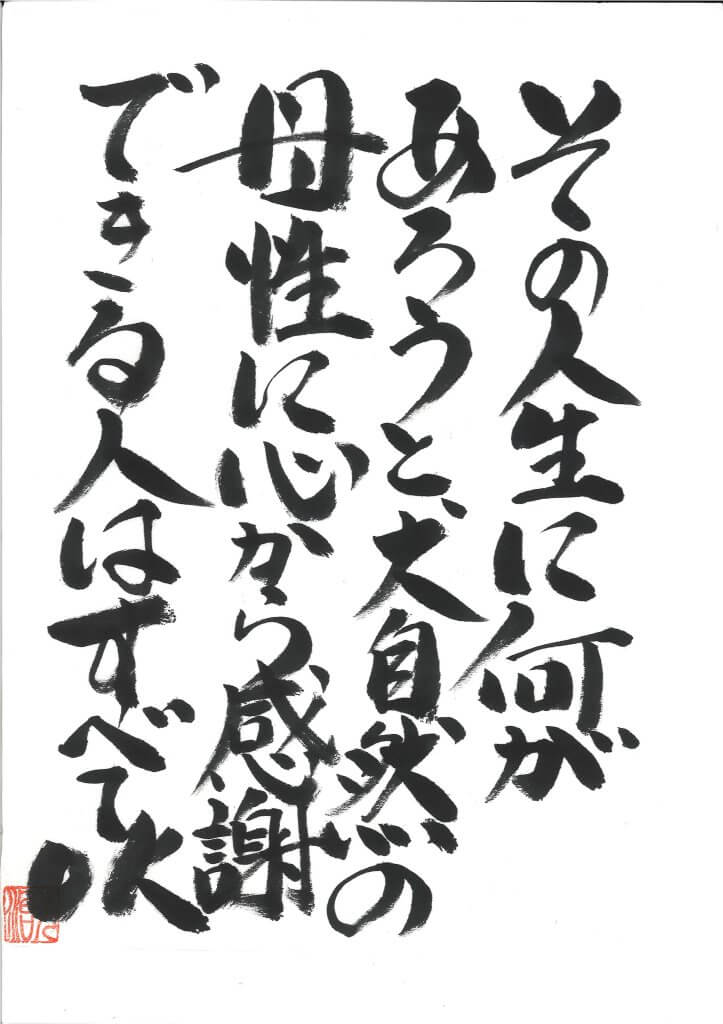 その人生に何が
あろうと、大自然の
母性に心から感謝
できる人はすべてOK